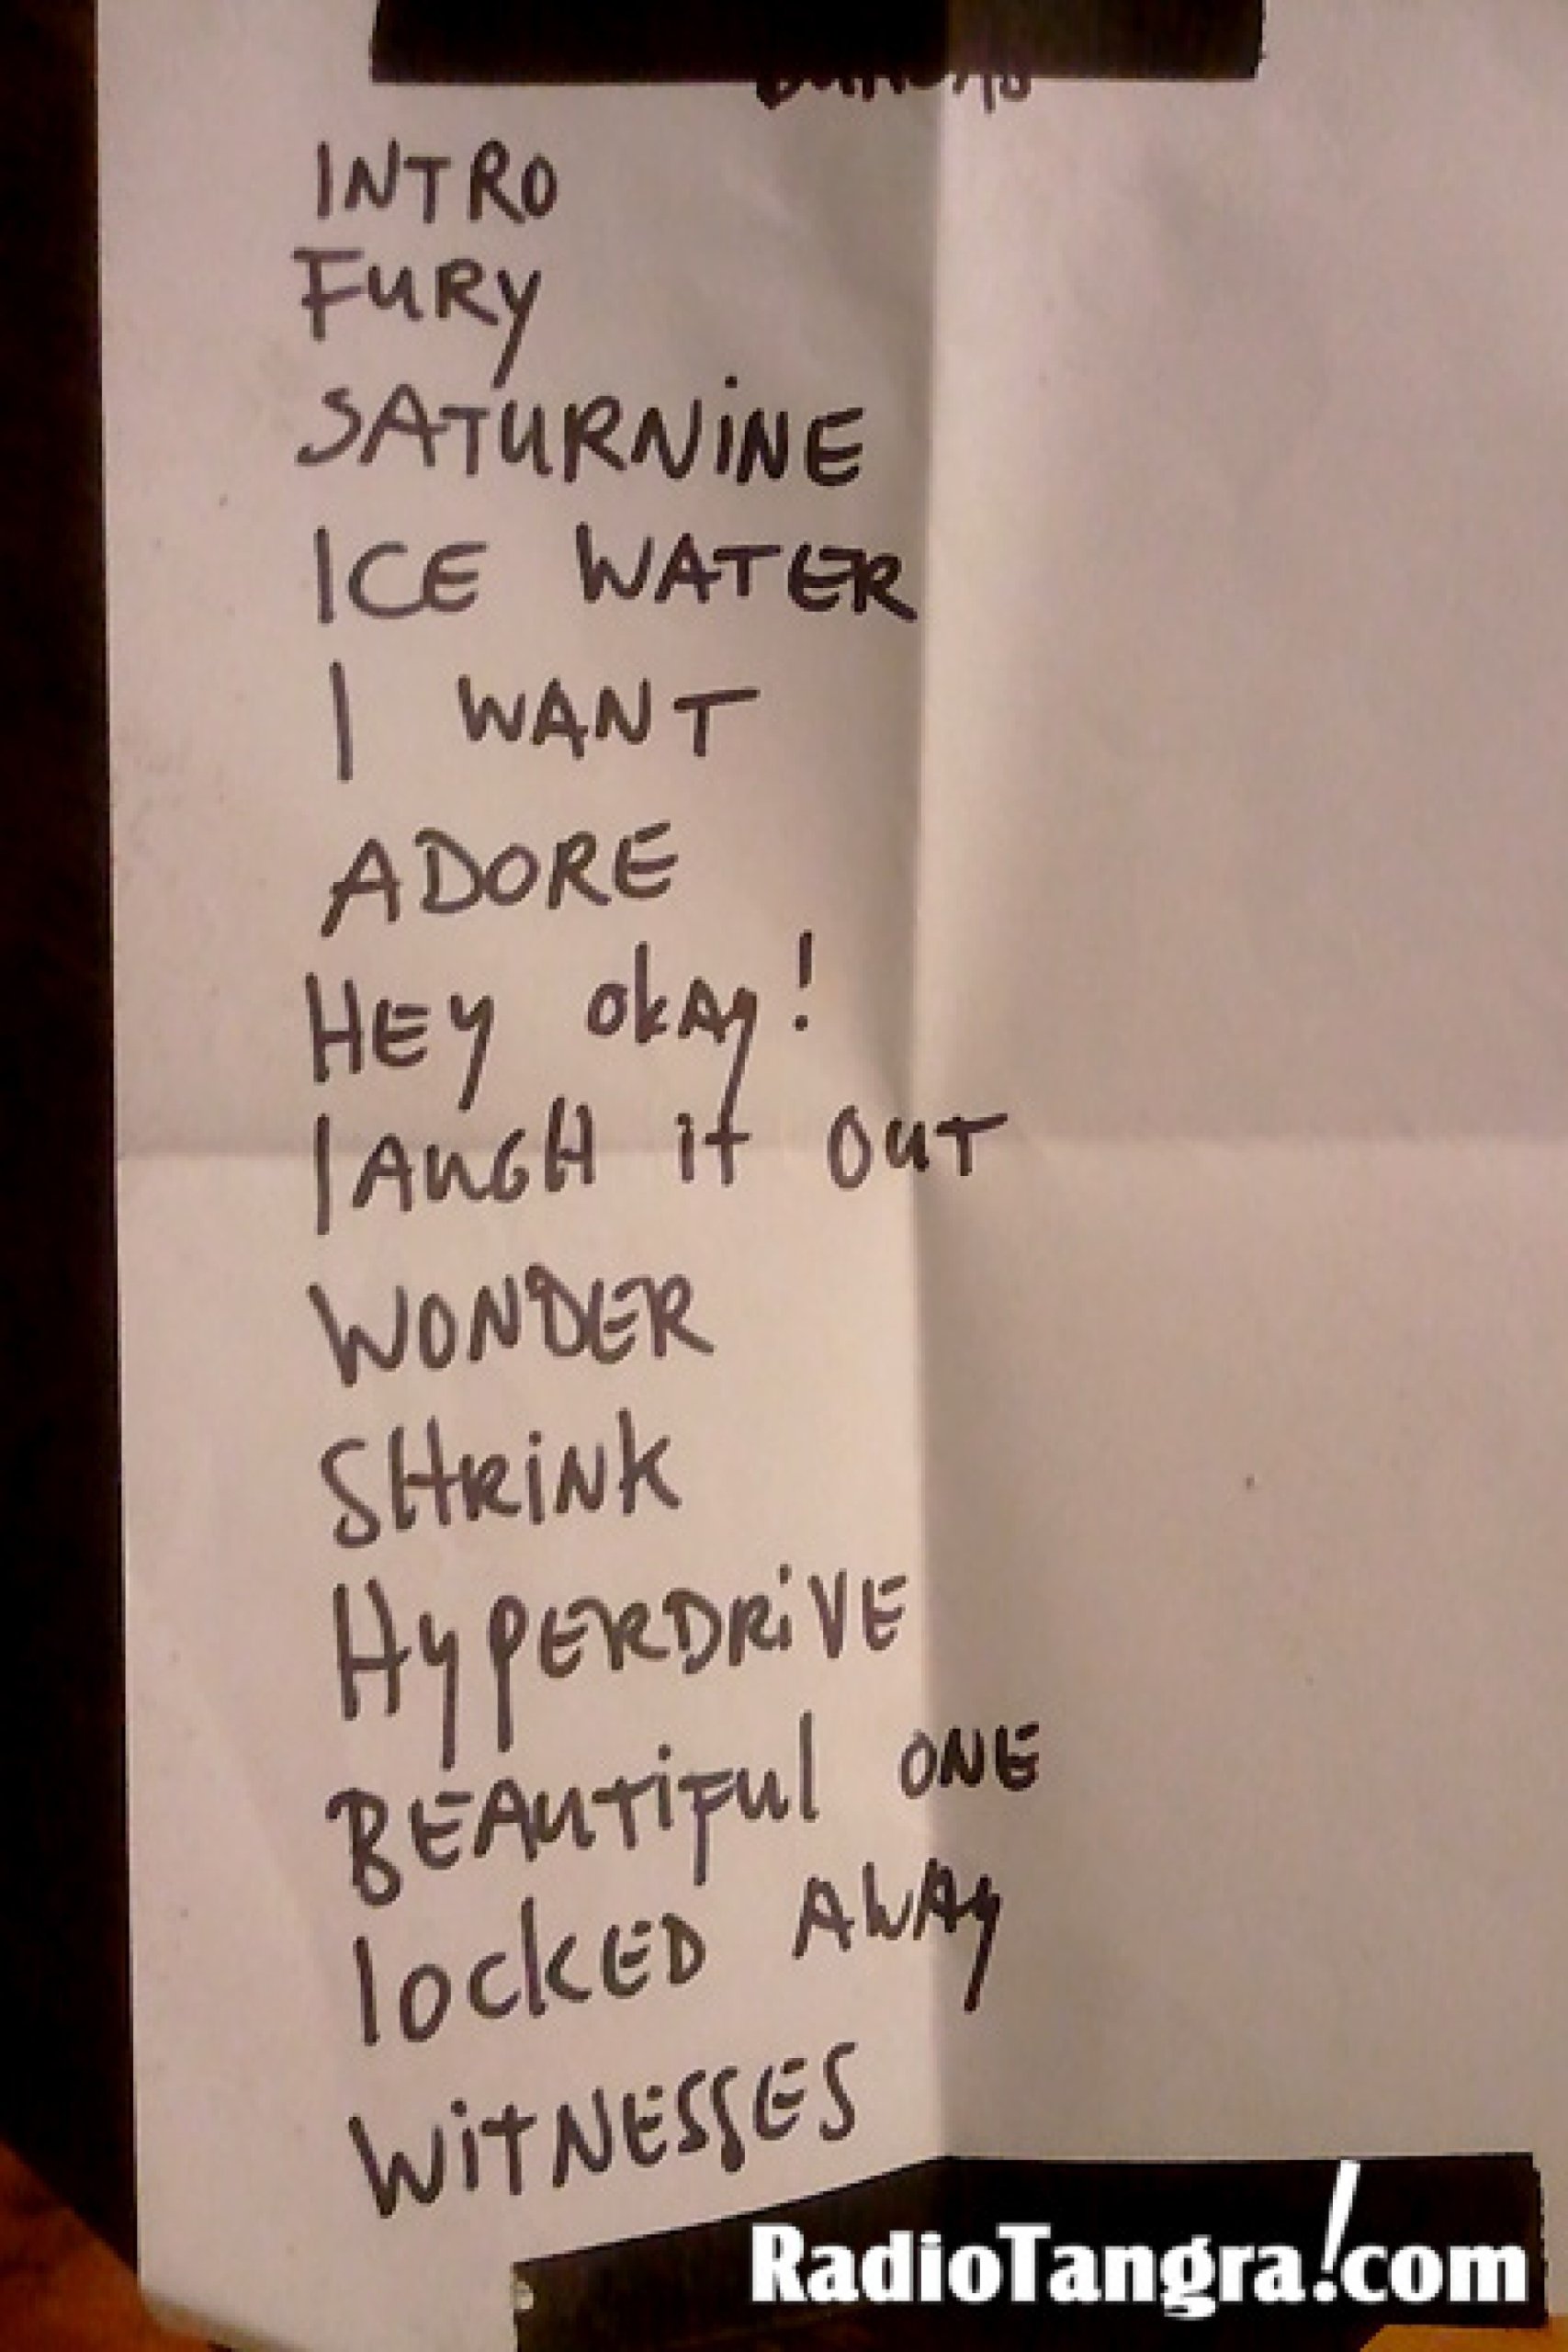 INTRO
FURY
SATURNINE
ICE WATER
I WANT
ADORE
HEY okAy!
lAUGH it OUT
WONDER
SHRiNk
HyPERDRiVE
BEAUTiFul ONE
lockED AWAy
WiTNESSES
RadioTangra!com